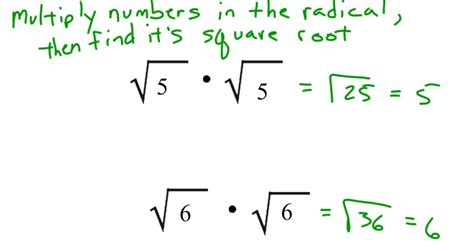 Multiply numbers in the radical,
then find it's square root
√5 • √5 = √25 = 5
√6 • √6 = √36 = 6